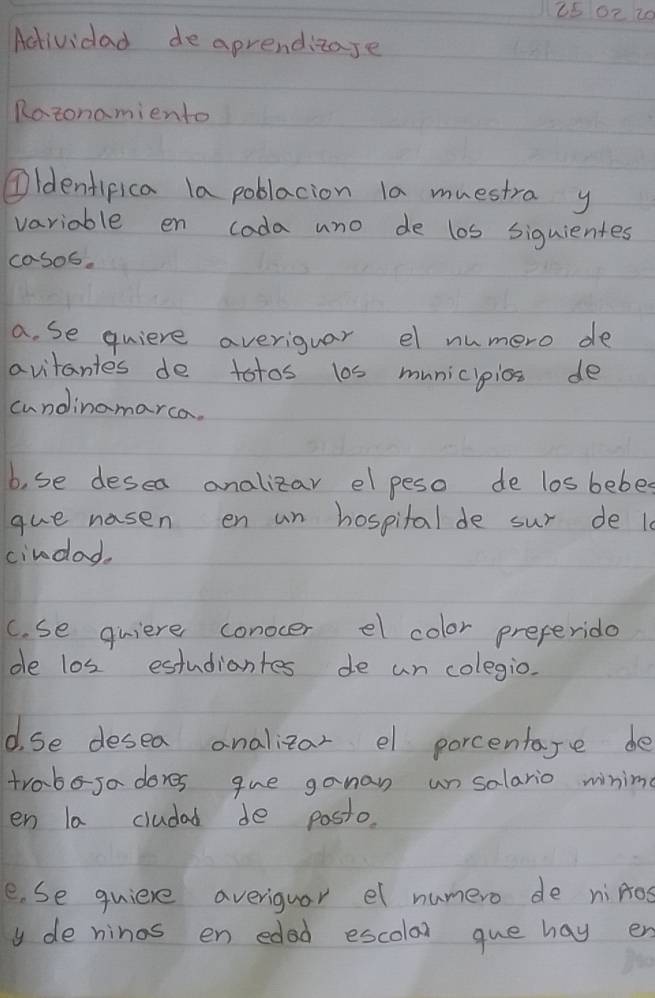 25 02 20
Actividad de aprendizaje
Razonamiento
① Identifica la poblacion la muestra y
variable en cada uno de los siguientes
casos.
a. Se quiere averiguar el numero de
avitantes de totos los municipios de
cundinamarca.
b. se desea analizar el peso de los bebes
que nasen en un hospital de sur de la
ciudad.
c. se quiere conocer el color preferido
de los estudiantes de un colegio.
d. se desea analizar el porcentaje de
trabajadores que ganan un salario minimo
en la ciudad de pasto.
e. Se quiere averiguar el numero de niños
y de ninas en edad escolar que hay en